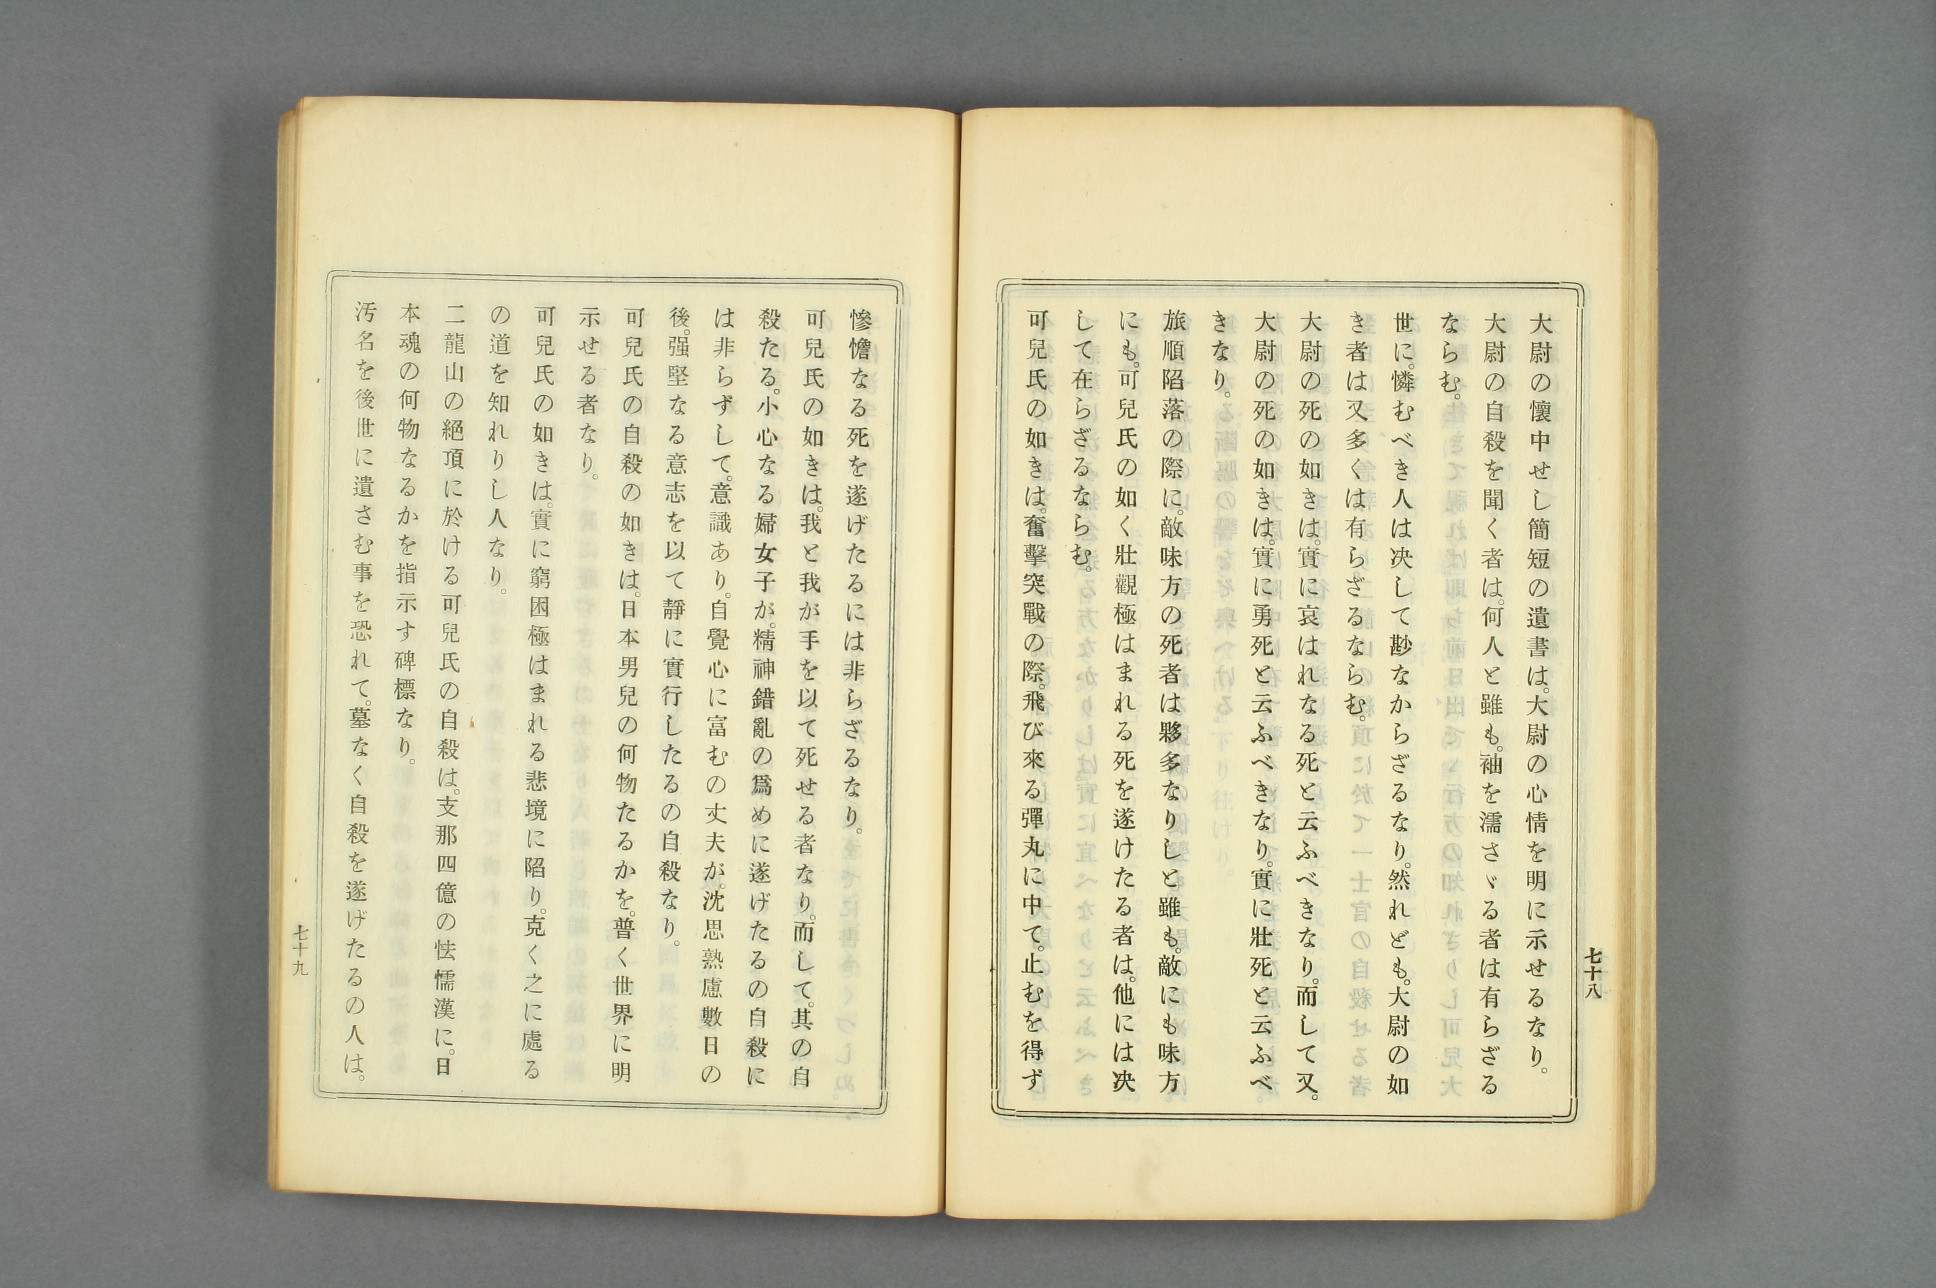 七十八
大尉の懷中せし簡短の遺書は。大尉の心情を明に示せるなり。
大尉の自殺を聞く者は。何人と雖も。袖を濡さゞる者は有らざる
ならむ。
世に。憐むべき人は决して尠なからざるなり。然れども。大尉の如
き者は又多くは有らざるならむ。
大尉の死の如きは。實に哀はれなる死と云ふべきなり。而して又。
大尉の死の如きは。實に勇死と云ふべきなり。實に壯死と云ふべ
きなり。
旅順陷落の際に。敵味方の死者は夥多なりしと雖も。敵にも味方
にも。可兒氏の如く壯觀極はまれる死を遂けたる者は。他には决
して在らざるならむ。
可兒氏の如きは。奮擊突戰の際。飛び來る彈丸に中て。止むを得ず
慘憺なる死を遂げたるには非らざるなり。
可兒氏の如きは。我と我が手を以て死せる者なり。而して。其の自
殺たる。小心なる婦女子が。精神錯亂の爲めに遂げたるの自殺に
は非らずして。意識あり。自覺心に富むの丈夫が。沈思熟慮數日の
後。强堅なる意志を以て靜に實行したるの自殺なり。
可兒氏の自殺の如きは。日本男兒の何物たるかを。普く世界に明
示せる者なり。
可兒氏の如きは。實に窮困極はまれる悲境に陷り。克く之に處る
の道を知れりし人なり。
二龍山の絕頂に於ける可兒氏の自殺は。支那四億の怯懦漢に。日
本魂の何物なるかを指示す碑標なり。
汚名を後世に遺さむ事を恐れて。墓なく自殺を遂げたるの人は。
七十九